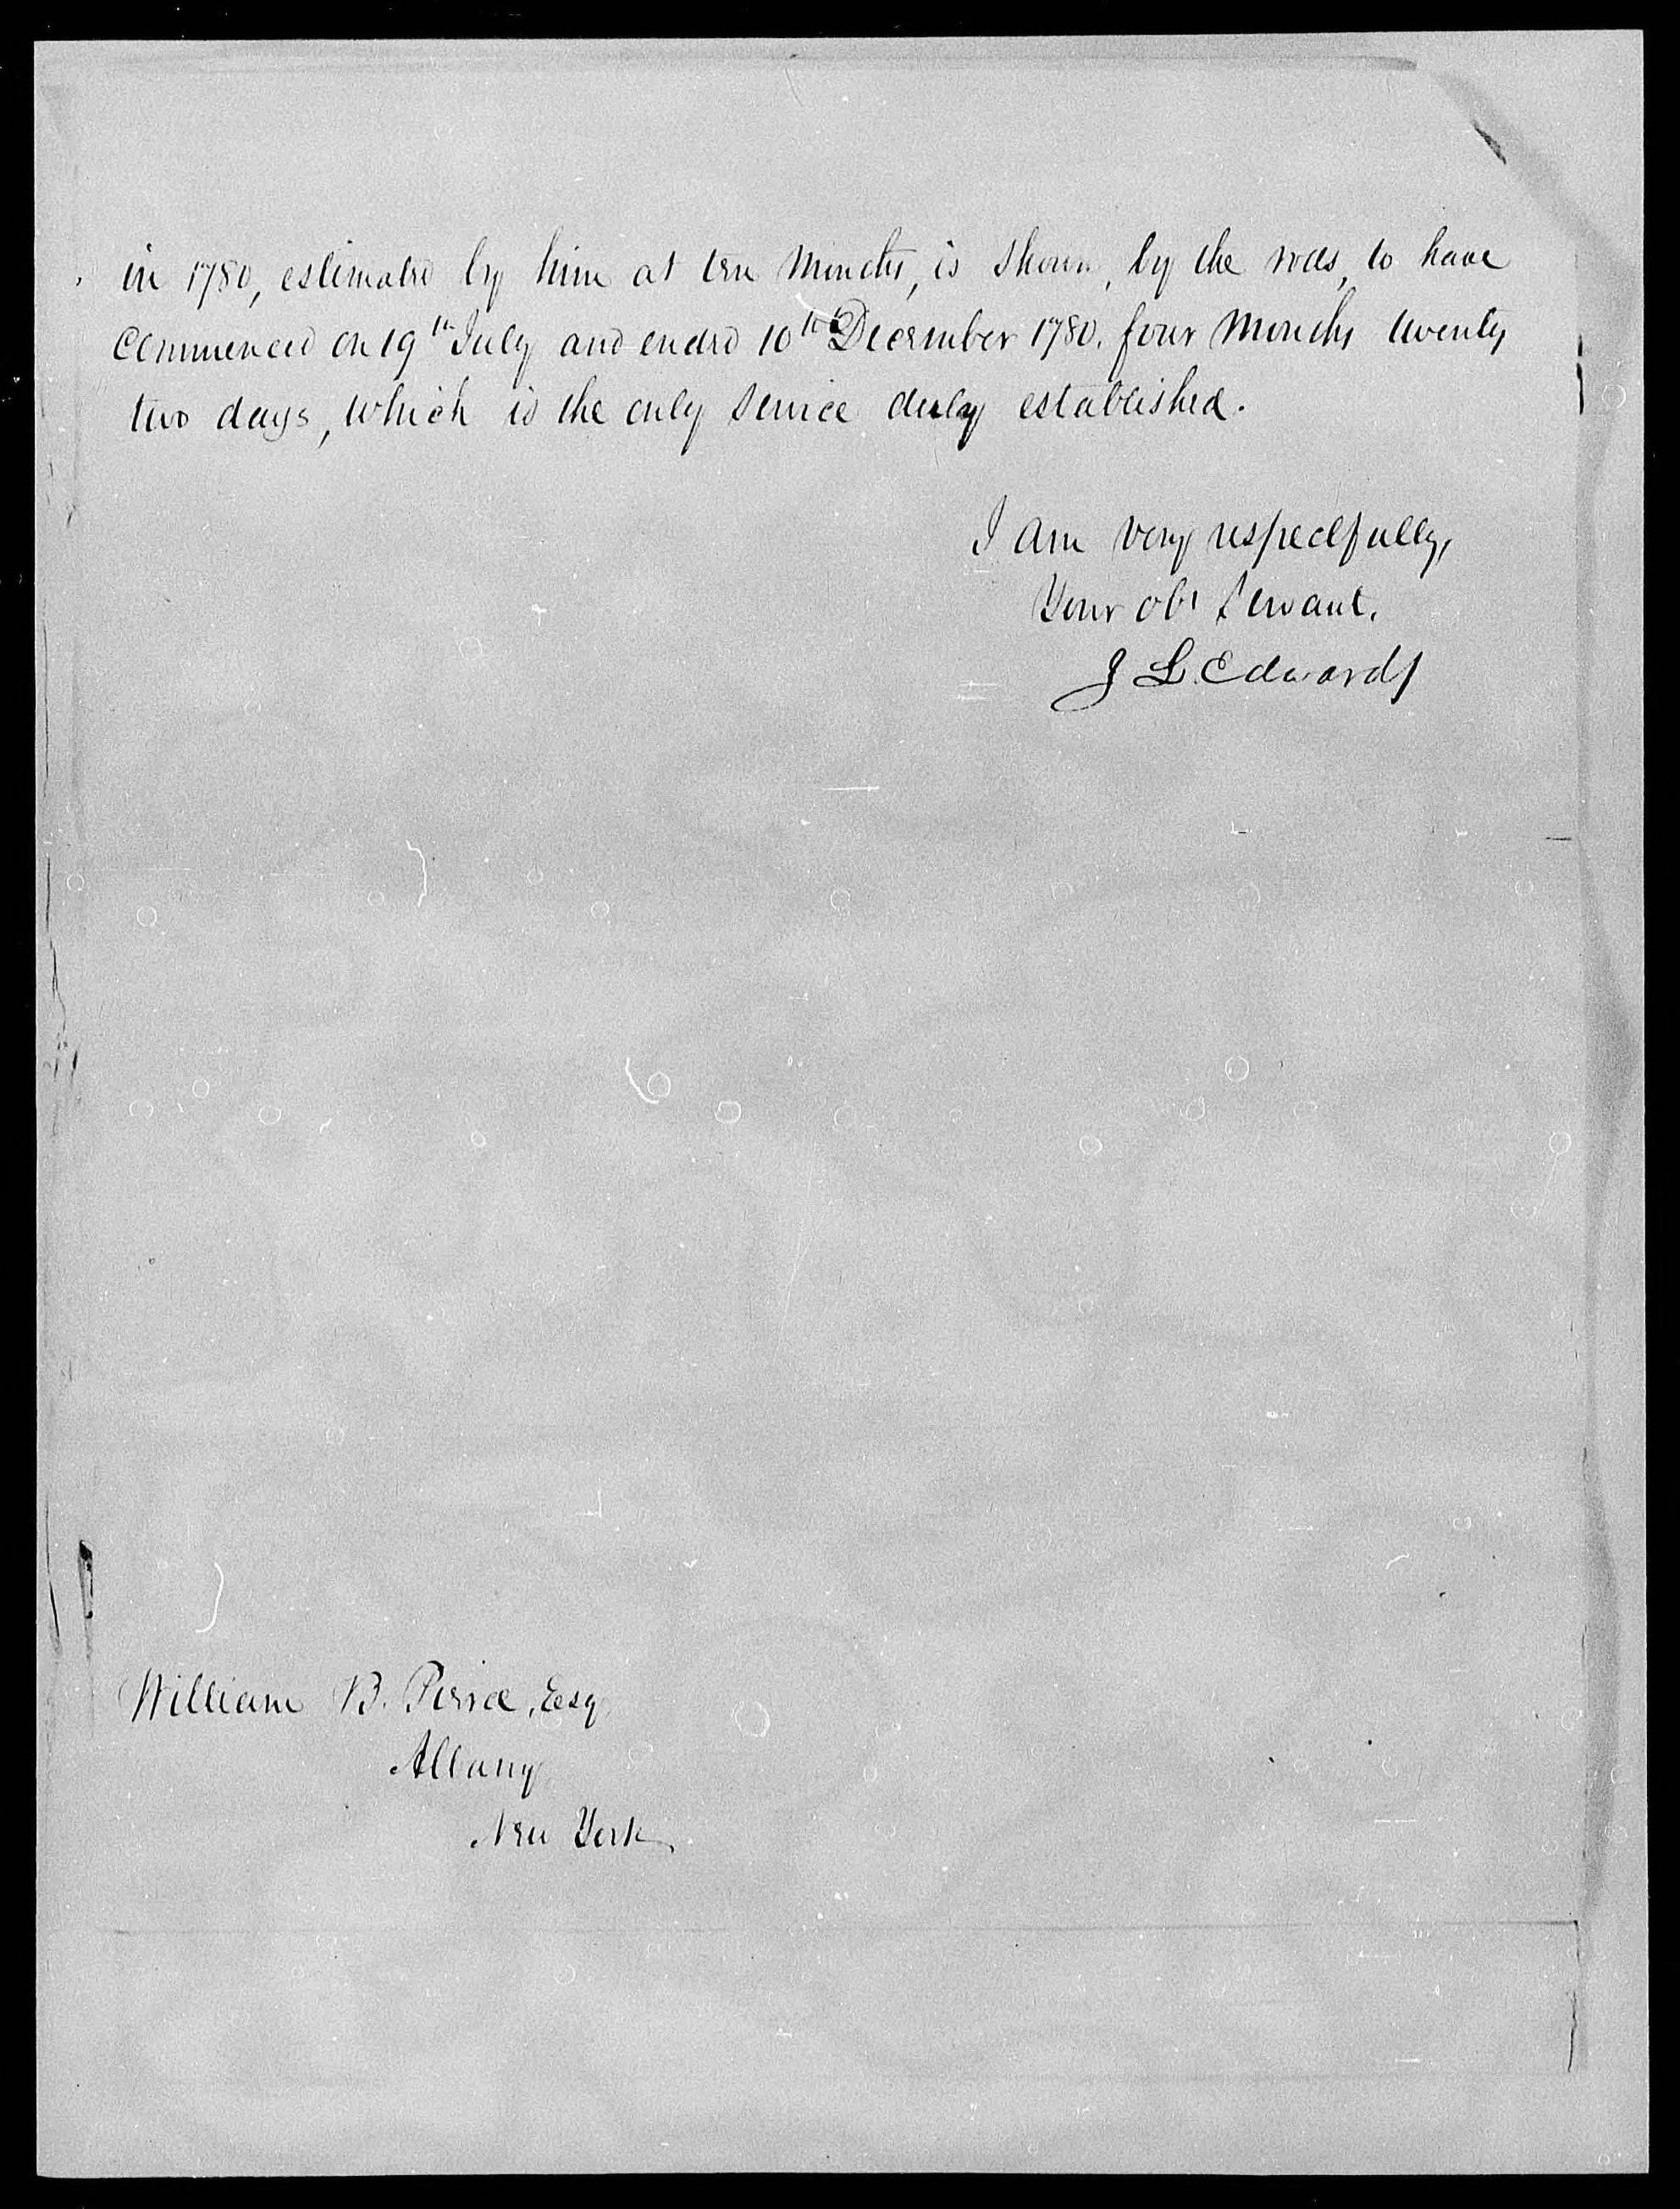 in 1780, estimated by him at ten months, is shown, by the rolls, to have
commenced on 19th July and ended 10th December 1780, four months twenty
two days, which is the only service duly established.
I am very respectfully,
Your obt Servant.
J L. Edwards
William B. Peirce, Esq
Albany
New York